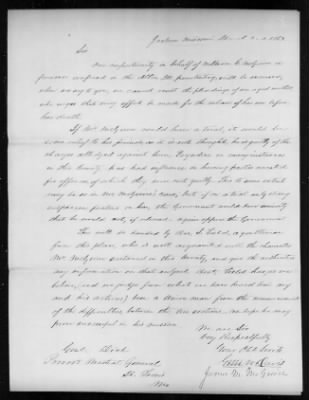 Jackson Missouri March 2nd 1863
Sir
Our importunity in behalf of William C. McGuire a
prisoner confined in the Alton Ill. penitentiary, will be
when we say to you, we cannot resist the pleadings of an aged mother
who urges that every effort be made for the release of her son before
her death.
If Mr. McGuire could have a trial, it would be
some relief to his friends, as it is not thought, he is guilty of the
charges alledged against him. Prejudice in some instances
in this County, has had influence, in having parties arrested
for offences, of which they were not guilty. To some extent
may be so in Mr McGuire's case, but if on a trial any thing
suspicious fastens on him, the Government could have security
that he would not, if released, again oppress the Government
This will be handed by Rev. Mr. Cobb, a gentleman
from this place, who is well acquainted with the character
Mr. McGuire sustained in this County, and give the authorities
any information on that subject.
believe, (and we judge from what we have heard him say
and his actions) been a Union man from the commencement
of the difficulties between the two sections. We hope he may
prove successful in his mission
We are Sir
Very Respectfully
Your Obt Servts
James M. McGuire
Genl. Dick
Provost Marshal General,
St. Louis
Mo